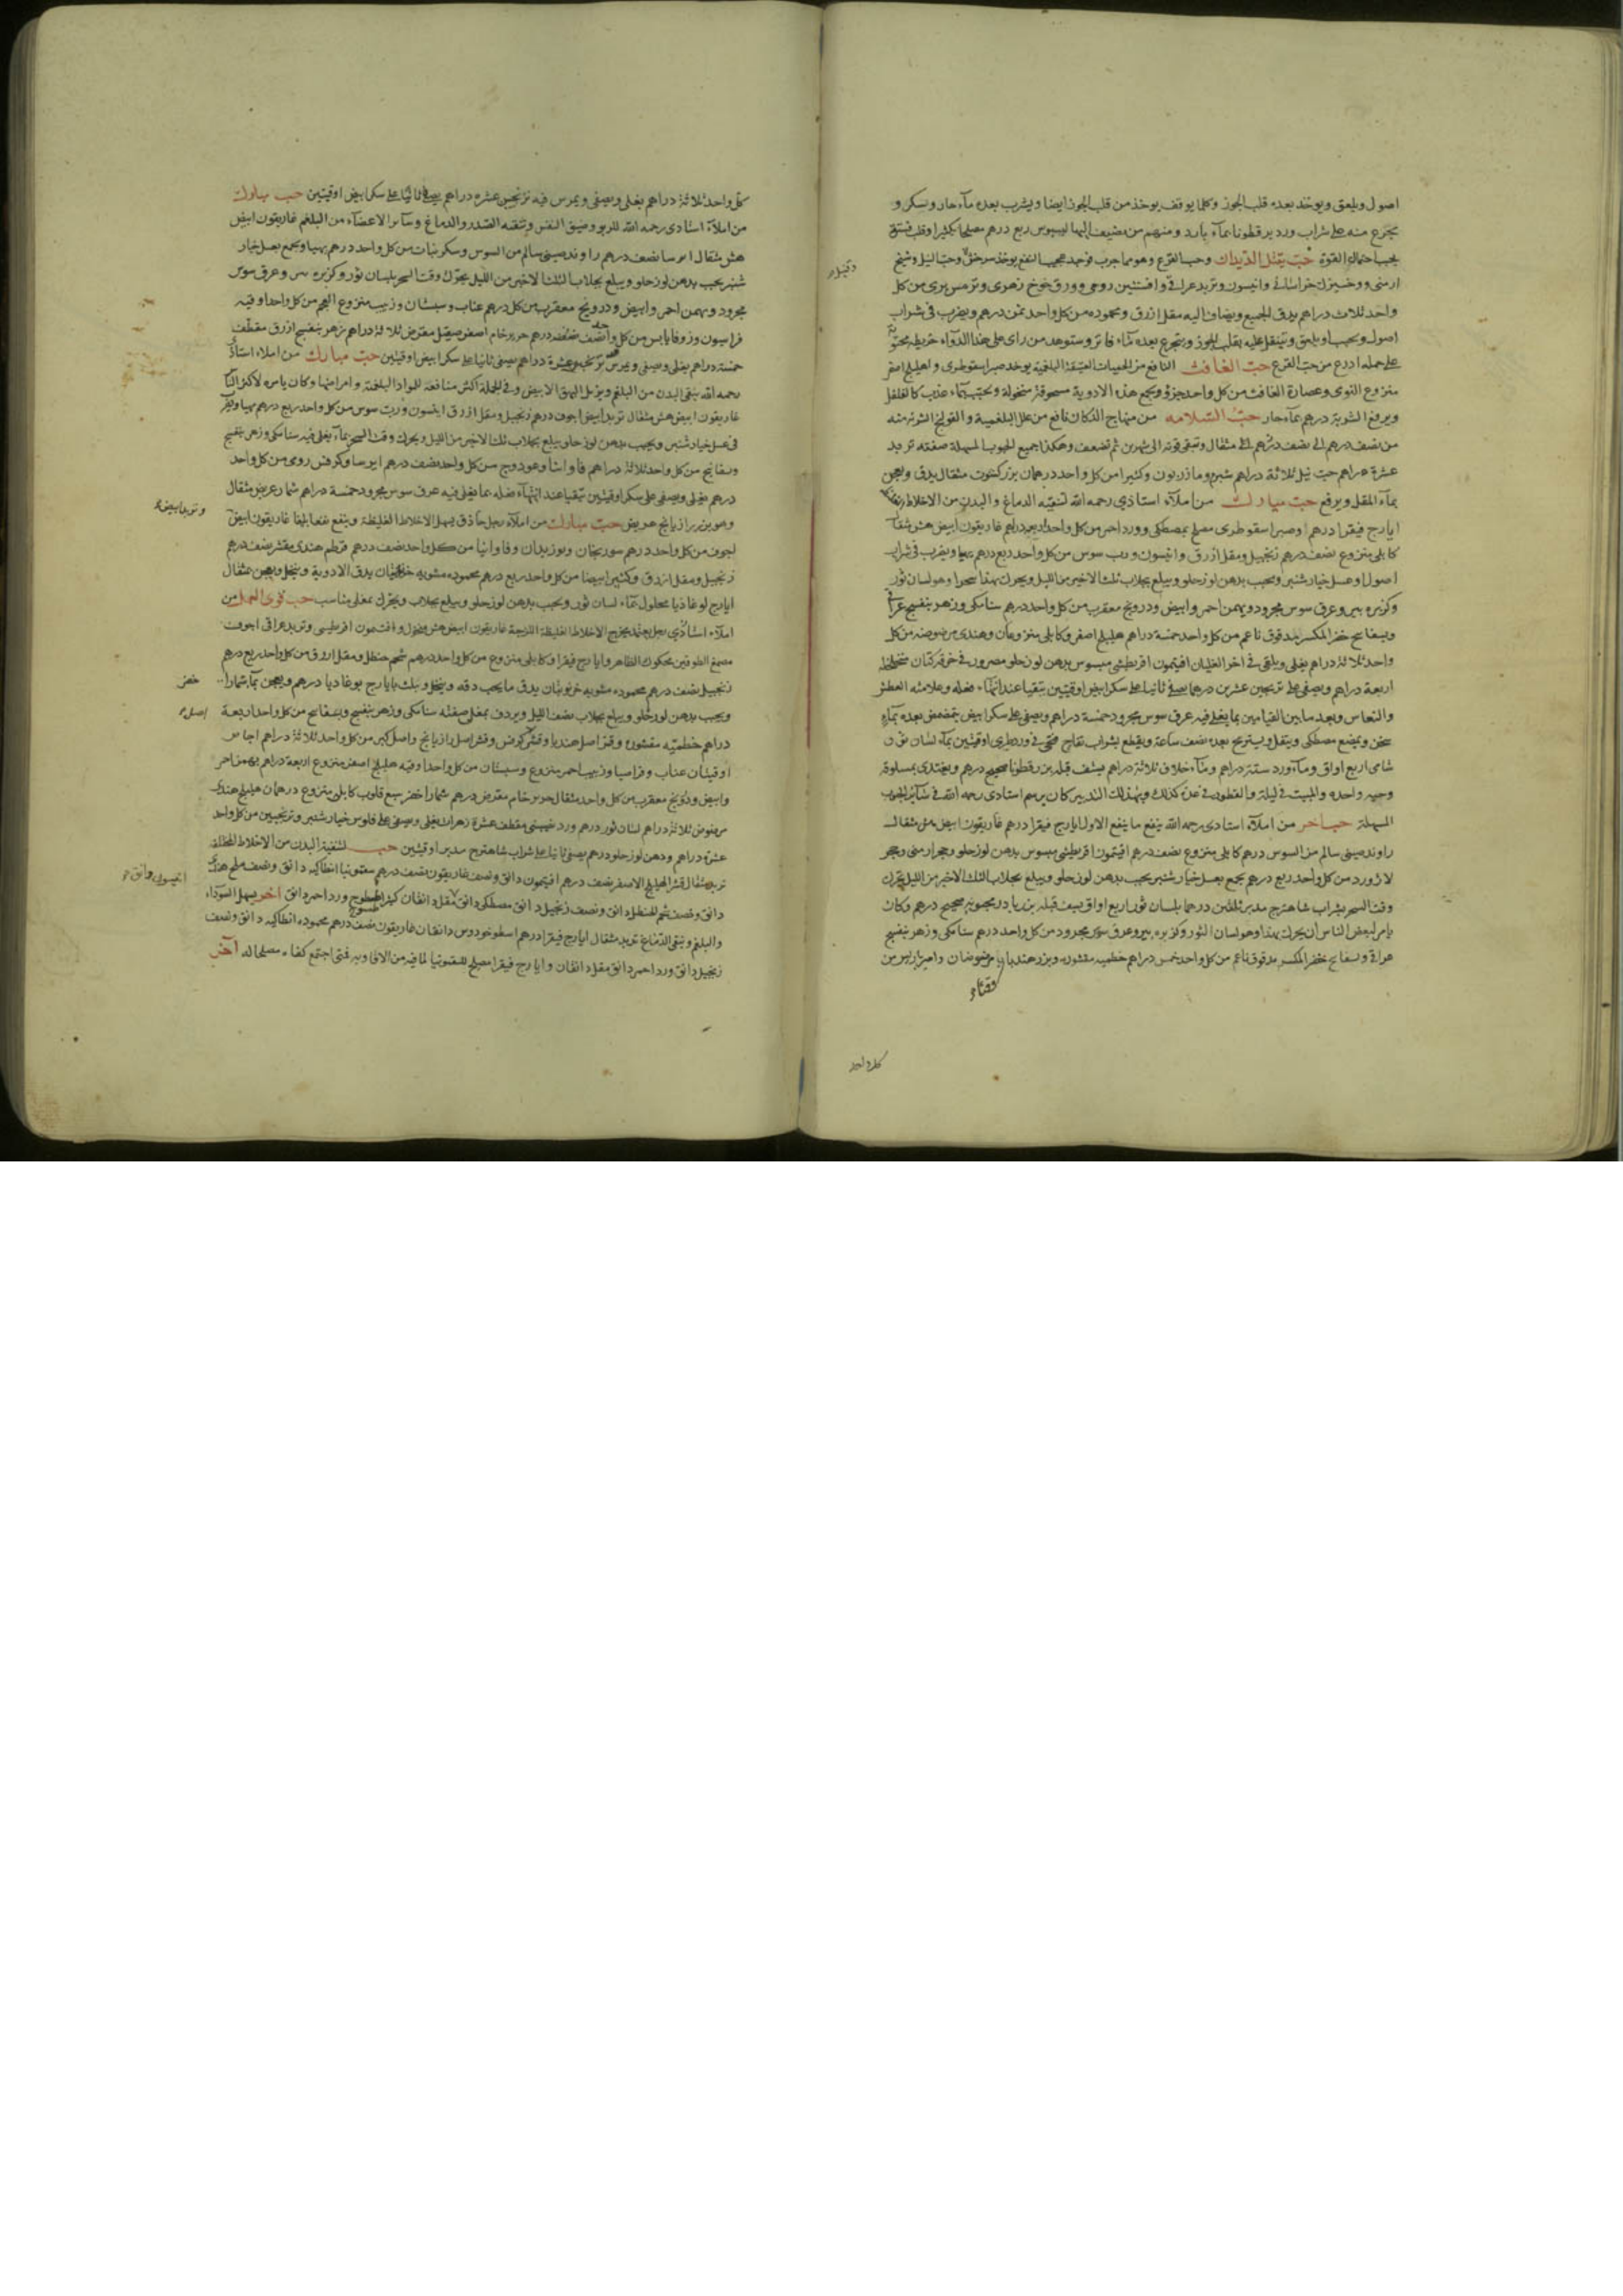 اصول ويلعق ويوخذ بعده قلب الجوز وكلما يوقف يوخذ من قلب الجوز ايضا ويشرب بعده مآء حار وسكر و
يتجرع منه على شراب ورد بزرقطونا بمآء بارد ومنهم من يضيف اليها لبسبوس ربع درهم مصلحا بكثيرا وقلب فستق
بحسب احتمال القوة حب يقتل الديدان وحب القرع وهو مما جرب فوجد عجيب النفع يوخذ سرخس وحب النيل وشيح
ارمنى ووخشيزك خراسانى وانيسون وتربد عراقى وافسنتين رومى وورق خوخ زهرى وترمس برى من كل
واحد ثلاث دراهم يدق الجميع ويضاف اليه مقل ازرق ومحموده من كل واحد ثمن درهم ويضرب فى شراب
اصول ويحبب او يلعق ويتنقل عليه بقلب الجوز ويتجرع بعده بمآء فاتر وستوهد من راى على هذا الدوآء خريطه محتويه
على جمله اذرع من حب القرع حب الغافث النافع من الحميات العتيقة البلغمية يوخذ صبر اسقوطرى واهليلج اصفر
منزوع النوى وعصارة الغافث من كل واحد جزؤ ويجمع هذه الادوية مسحوقة منخولة وتحبب بمآء عذب كالفلفل
ويرفع الشربة درهم بمآء حار حب السلامه من منهاج الدكان نافع من علل البلغمية والقولنج الشربة منه
من نصف درهم الى نصف درهم الى مثقال وتبقى قوته الى شهرين ثم تضعف وهكذا جميع الحبوب المسهلة صفته تربد
عشرة دراهم حب نيل ثلاثة دراهم شبرم ومازريون وكثيرا من كل واحد درهمان بزر كشوت مثقال يدق ويعجن
بمآء المقل ويرفع حب مبارك من املآء استاذى رحمه الله لتنقيه الدماغ والبدن من الاخلاط
ايارج فيقرا درهم وصبر اسقوطرى مصلح بمصطكى وورد احمر من كل واحد ربع درهم غاريقون ابيض هش مثقال
كابلى منزوع نصف درهم زنجبيل ومقل ازرق وانيسون ورب سوس من كل واحد ربع درهم يهيا ويضرب فى شراب
اصول او عسل خيار شنبر ويحبب بدهن لوز حلو ويبلع بجلاب ثلث الاخير من الليل ويحرك بهذا سحرا وهو لسان ثور
وكزبره بير وعرق سوس مجرود وبهمن احمر وابيض ودرونج معقرب من كل واحد درهم سنا مكى وزهر بنفسج عراقى
وبسفايج خضر المكسر مدقوق ناعم من كل واحد خمسة دراهم هليلج اصفر وكابلى منزوعان وهندى مرضوضه من كل
واحد ثلاثة دراهم يغلى ويلقى فى اخر الغليان افتيمون اقريطشى مبسوس بدهن لوز حلو مصرور فى خرقة كتان
اربعة دراهم ويصفى على ترنجبين عشرين درهما يصفى ثانيا على سكر ابيض اوقيتين يتقيا عند انتهآء فعله وعلامته العطش
والنعاس وبعد ما بين القيامين بما يغلى فيه عرق سوس مجرود خمسة دراهم ويصفى على سكر ابيض يتمضمض بعده بمآء
سخن ويمضع مصطكى ويتنقل ويستريح بعده نصف ساعة ويقطع بشراب تفاح فتحى فى ورد طرى اوقيتين بمآء لسان ثور
شامى اربع اواق ومآء ورد ستة دراهم ومآء خلاف ثلاثة دراهم يسف قبله بزرقطونا صحيح درهم ويغتدى بمسلوقة
وحبه واحده والمبيت فى ليلة والفطور فى غدة كذلك وبهذا التدبير كان يرسم استادى رحمه الله فى سآئر الحبوب
المسهلة حب اخر من املآء استادى رحمه الله ينفع ما ينفع الاول ايارج فيقرا درهم غاريقون ابيض هش مثقال
راوند صينى سالم من السوس درهم كابلى منزوع نصف درهم افتيمون اقريطشى مبسوس بدهن لوز حلو وحجر ارمنى وحجر
لازورد من كل واحد ربع درهم يجمع بعسل خيار شنبر يحبب بدهن لوز حلو ويبلع بجلاب الثلث الاخير من الليل يحرك
وقت السحر بشراب شاهترج مدبر ثلثين درهما بلسان ثور اربع اواق يسف قبله بزر باذرنجبويه صحيح درهم وكان
يامر لبعض الناس ان يحرك بهذا وهو لسان الثور وكزبره بير وعرق سوس مجرود من كل واحد درهم سنا مكى وزهر بنفسج
عراقى وبسفايج خضر المكسر مدقوق ناعم من كل واحد خمس دراهم خطميه مقشوره وبزر هندبا مرضوضان وامير باريس من
كل واحد
كل واحد ثلاثة دراهم يغلى ويصفى ويمرس فيه ترنجبين عشره دراهم يصفى ثانيا على سكر ابيض اوقيتين حب مبارك
من املآء استاذى رحمه الله للربو وضيق النفس وتنقيه الصدر والدماغ وسآئر الاعضآء من البلغم غاريقون ابيض
هش مثقال ايرسا نصف درهم راوند صينى سالم من السوس وسكر نبات من كل واحد درهم يهيا ويجمع بعسل خيار
شنبر يحبب بدهن لوز حلو ويبلع بجلاب الثلث الاخير من الليل يحرك وقت السحر بلسان ثور وكزبره بير وعرق سوس
مجرود وبهمن احمر وابيض ودرونج معقرب من كل درهم عناب وسبستان وزبيب منزوع العجم من كل واحد اوقيه
فراسيون وزوفا يابس من كل واحد نصف درهم حرير خام اصفر صيقل مقرض ثلاثة دراهم زهر بنفسج ازرق مقطف
خمسة دراهم يغلى ويصفى ويمرس ترنجبين عشرة دراهم يصفى ثانيا على سكر ابيض اوقيتين حب مبارك من املاء استاذى
رحمه الله ينقى البدن من البلغم ويزيل البهق الابيض وفى الجملة اكثر منافعه للمواد البلغمية وامراضها وكان يامره لاكثر الناس
غاريقون ابيض هش مثقال تربد ابيض اجوف درهم زنجبيل ومقل ازرق انيسون ورب سوس من كل واحد ربع درهم يهيا ويضرب
فى عسل خيار شنبر ويحبب بدهن لوز حلو يبلع بجلاب ثلث الاخير من الليل ويحرك وقت السحر بمآء يغلى فيه سنا مكى وزهر بنفسج
وبسفايج من كل واحد ثلاثة دراهم فاوانيا وعود وج من كل واحد نصف درهم ايرسا وكرفس رومى من كل واحد
درهم يغلى ويصفى على سكر اوقيتين يتقيا عند انتهآء فعله بما يغلى فيه عرق سوس مجرود خمسة دراهم شمار عريض مثقال
وهو بزر رازيانج عريض حب مبارك من املآء رجل حاذق يسهل الاخلاط الغليظة وينفع نفعا بليغا غاريقون ابيض
اجوف من كل واحد درهم سورنجان وبوزيدان وفاوانيا من كل واحد نصف درهم قرطم هندى مقشر نصف درهم
زنجبيل ومقل ازرق وكثيرا بيضا من كل واحد ربع درهم محموده مشويه خرنوبتان يدق الادوية وينخل ويعجن بمثقال
ايارج لوغاذيا محلول بمآء لسان ثور ويحبب بدهن لوز حلو ويبلع بجلاب ويحرك بمغلى مناسب حب قوى العمل من
املآء استاذى رجل يعتمد يخرج الاخلاط الغليظة اللزجة غاريقون ابيض هش منخول وافتيمون اقريطشى وتربد عراقى اجوف
مصمغ الطرفين محكوك الظاهر وايارج فيقرا وكابلى منزوع من كل واحد درهم شحم حنظل ومقل ازرق من كل واحد ربع درهم
زنجبيل نصف درهم محموده مشويه خرنوبتان يدق ما يجب دقه وينخل ويلت بايارج لوغاديا درهم ويعجن بمآء شمار
ويحبب بدهن لوز حلو ويبلع بجلاب نصف الليل ويردف بمغلى صفته سنا مكى وزهر بنفسج وبسفايج من كل واحد اربعة
دراهم خطميه مقشوره وقشر اصل هندبا وقشر كرفس وقشر اصل رازيانج واصل كبر من كل واحد ثلاثة دراهم اجاص
اوقيتان عناب وقراصيا وزبيب احمر منزوع وسبستان من كل واحد اوقيه هليلج اصفر منزوع اربعة دراهم بهمن احمر
وابيض ودرونج معقرب من كل واحد مثقال حرير خام مقرض درهم شمار اخضر سبع قلوب كابلى منزوع درهمان هليلج هندى
مرضوض ثلاثة دراهم لسان ثور درهم ورد نصيبينى مقطف عشرة زهرات يغلى ويصفى على فلوس خيار شنبر وترنجبين من كل واحد
عشرة دراهم ودهن لوز حلو درهم يصفى ثانيا على شراب شاهترج مدبر اوقيتين حب لتنقية البدن من الاخلاط المختلفة
تربد مثقال قشر الهليلج الاصفر نصف درهم افتيمون دانق ونصف غاريقون نصف درهم سقمونيا انطاكيه دانق ونصف ملح هندى
دانق ونصف شحم الحنظل دانق ونصف زنجبيل دانق مصطكى دانق مقل دانقان كثيرا طسوج ورد احمر دانق اخر يسهل السودآء
والبلغم وينقى الدماغ تربد مثقال ايارج فيقرا درهم اسطوخودوس دانقان غاريقون نصف درهم محموده انطاكيه دانق ونصف
زنجبيل دانق ورد احمر دانق مقل دانقان وايارج فيقرا مصلح للسقمونيا لما فيه من الافاويه فمتى اجتمع كفاه مصلحا له آخر
وتربد ابيض
خضر
اصل
انيسون دانق